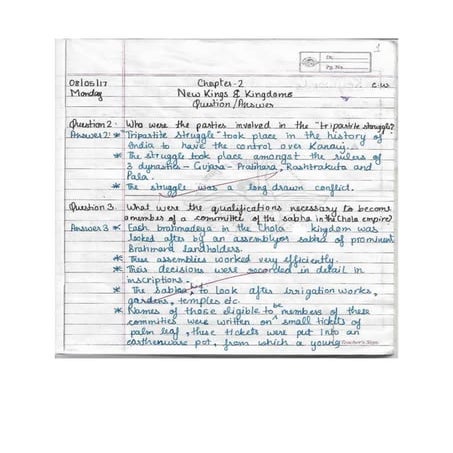 1
Dt.
Pg. No.
08/05/17 Chapter-2 C.W
Monday New Kings & Kingdoms
Question/Answer
Question 2. Who were the parties involved in the "tripartite struggle?
Answer 2. * "Tripartite struggle" took place in the history of
India to have the control over Kanauj.
* The struggle took place amongst the rulers of
3 dynasties - Gujara - Pratihara, Rashtrakuta and
Pala.
* The struggle was a long drawn conflict.
Question 3. What were the qualifications necessary to become
a member of a committee of the sabha in the Chola empire?
Answer 3 * Each brahmadeya in the Chola kingdom was
looked after by an assembly or sabha of prominent
Brahmana landholders.
* These assemblies worked very efficiently.
* Their decisions were recorded in detail in
inscriptions.
* The Sabha to look after irrigation works,
gardens, temples etc.
* Names of those eligible to be members of these
committies were written on small tickets of
palm leaf, these tickets were put into an
earthenware pot, from which a young
Teacher's Sign